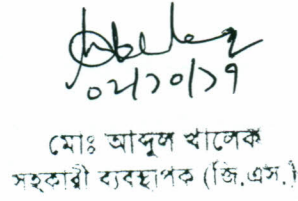 ০২/১০/১৭
মোঃ আব্দুল খালেক
সহকারী ব্যবস্থাপক (জি.এস.)